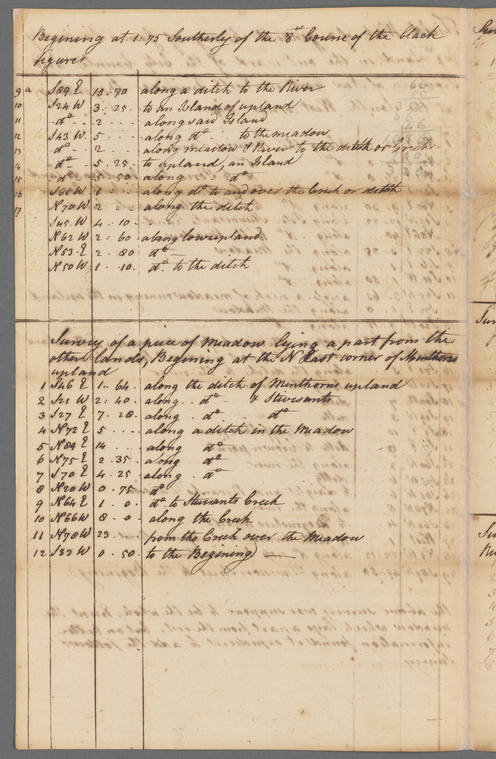 Begining at 1:75 Southerly of the 8th Course of the black
figures
9 a S89 E 13.70 along a ditch to the River
10 S24 W 3.25 to an Island of upland
11 do 2 along said Island
12 S43 W 5 along do to the meadow
13 do 2 along meadow & River to the ditch or Creek
14 do 5.25 to upland, an Island
15 do 5.50 along do
16 S68 W 1 along do to and over the Creek or ditch
17 N70 W 2 along the ditch
S45 W 4.10
N62 W 2:60 along low upland
N53 E 2.80 do
N50 W 1.10 do to the ditch
Survey of a piece of Meadow lying a part from the
other Lands, Begining at the N East corner of Minthorns
upland
1 S46 E 1.64 along the ditch of Minthorns upland
2 S21 W 2:40 along do & Stuvsants
3 S27 E 7.28 along do do
4 N72 E 5 along a ditch in the Meadow
5 N89 E 14 along do
6 N75 E 2.35 along do
7 S70 E 4.25 along do
8 N20 W 0.75 do
9 N64 E 1.0 do to Stuvsants Creek
10 N66 W 8.0 along the Creek
11 N70 W 23 from the Creek over the Meadow
12 S39 W 0.50 to the Begining